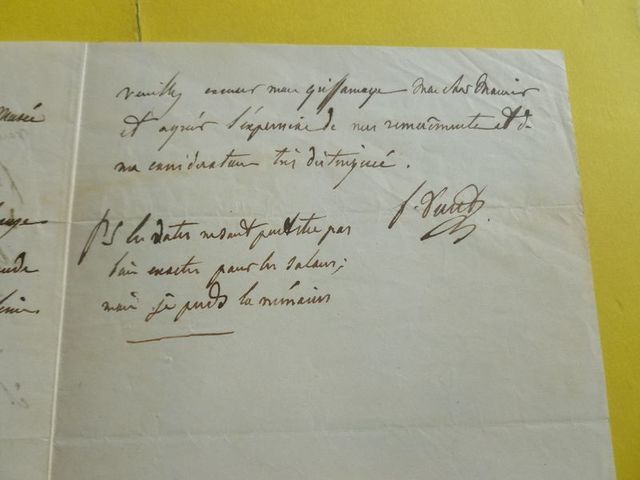 Musée
veuillez excuser mon griffonnage Mon cher Monsieur
et agréer l'expression de mes remerciments et de
ma considération très distinguée.
PS les dates ne sont peut être pas
bien exactes pour les salons;
mais je perds la mémoire